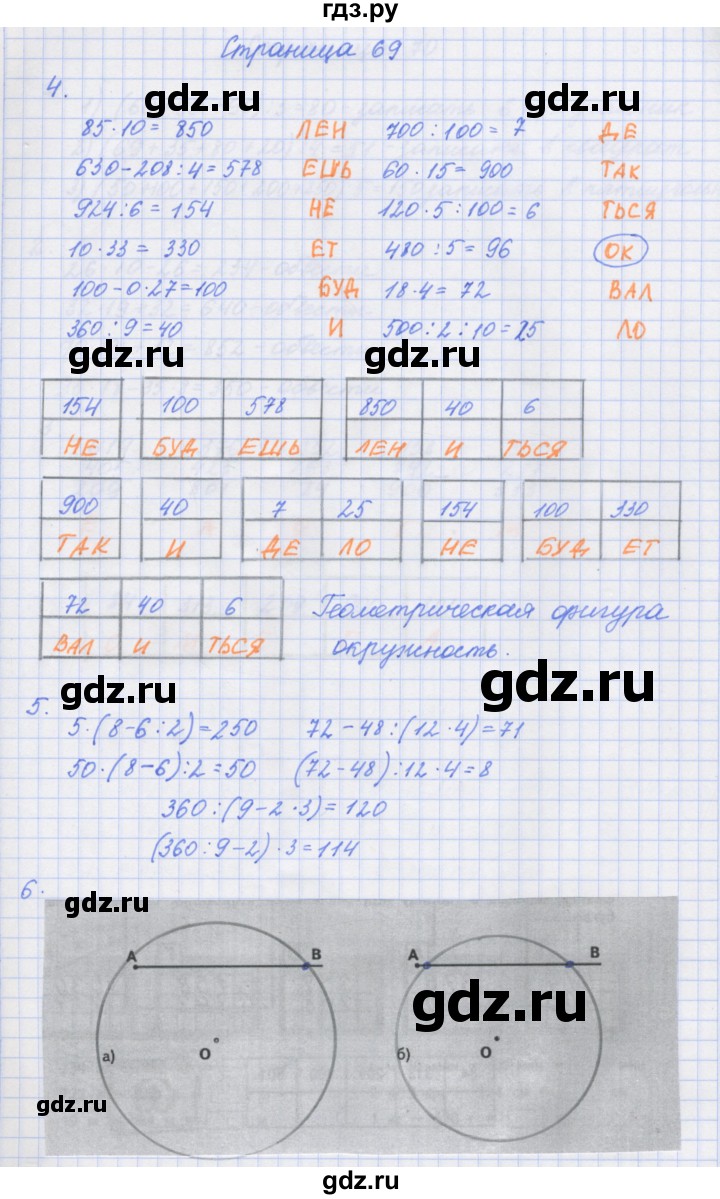 гдз.ру
Страница 69
gdz.ru gdz.ru
4.
85·10 = 850 ЛЕН 700:100 = 7 ДЕ
630-208:4=578 ЕШЬ 60·15=900 ТАК
924:6=154 НЕ 120·5:100=6 ТЬСЯ
10·33 = 330 ЕТ 480:5=96 ОК
100-0·27=100 БУД 18·4=72 ВАЛ
360:9=40 И 500:2:10=25 ЛО
gdz.ru gdz.ru
154 100 578 850 40 6
НЕ БУД ЕШЬ ЛЕН И ТЬСЯ
900 40 7 25 154 100 330
ТАК И ДЕ ЛО НЕ БУД ЕТ
72 40 6 Геометрическая фигура
ВАЛ И ТЬСЯ окружность.
gdz.ru gdz.ru
5.
5·(8-6:2)=250 72-48:(12·4)=71
50·(8-6):2=50 (72-48):12·4=8
360:(9-2·3)=120
(360:9-2)·3=114
6.
gdz.ru
А В А В
gdz.ru
а) О б) О
gdz.ru
gdz.ru